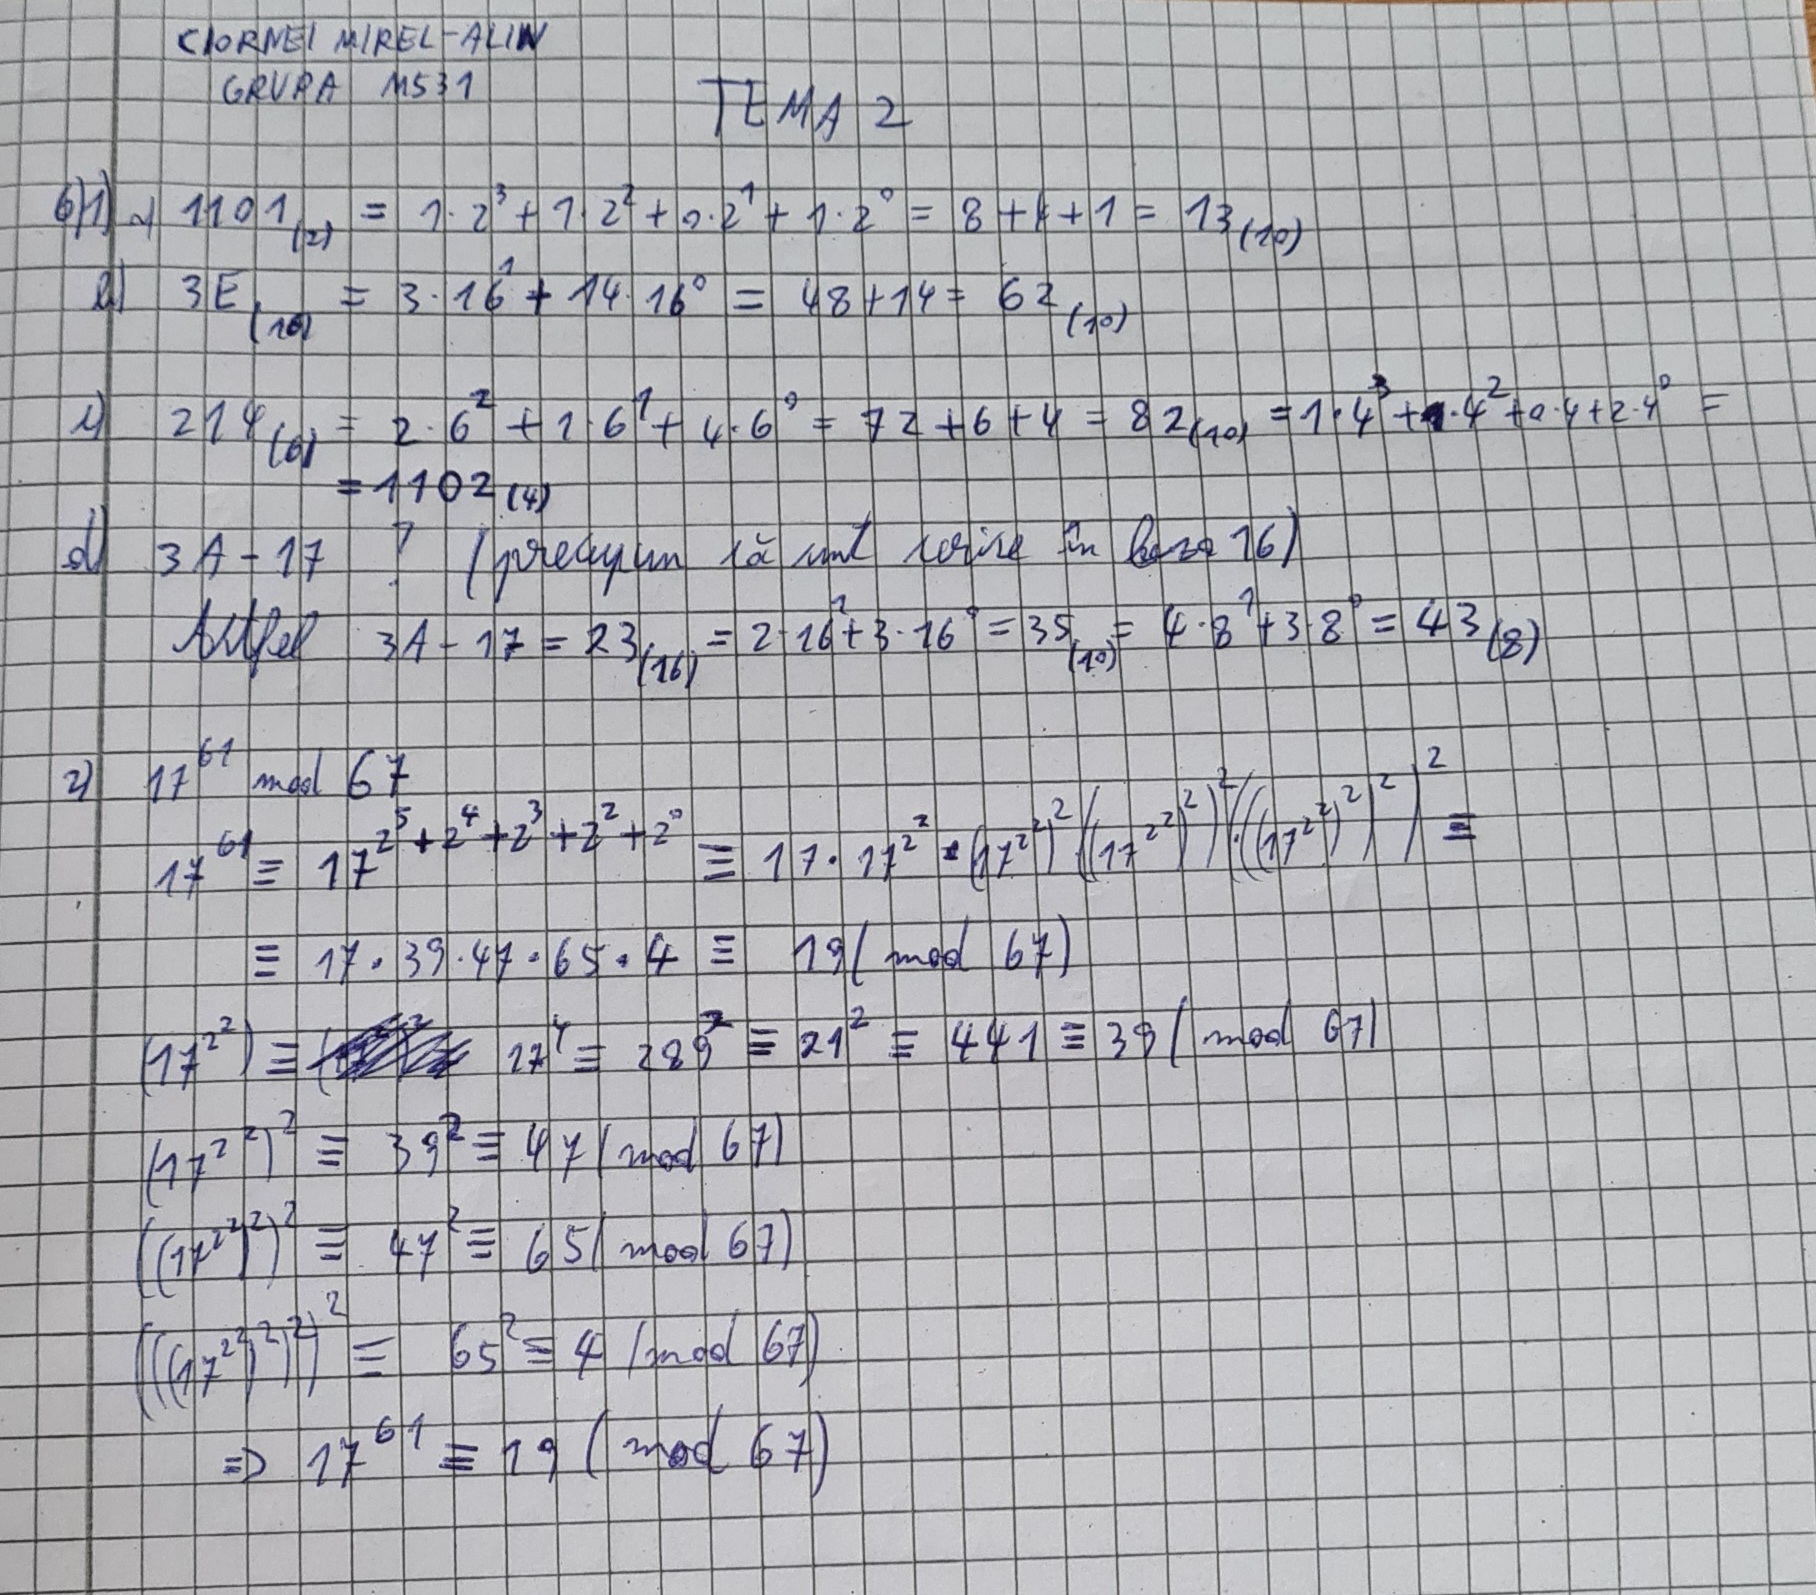 CIORNEI MIREL-ALIN
GRUPA M531
TEMA 2
6)1) a) 1101₍₂₎ = 1·2³ + 1·2² + 0·2¹ + 1·2⁰ = 8 + 4 + 1 = 13₍₁₀₎
b) 3E₍₁₆₎ = 3·16¹ + 14·16⁰ = 48 + 14 = 62₍₁₀₎
c) 214₍₆₎ = 2·6² + 1·6¹ + 4·6⁰ = 72 + 6 + 4 = 82₍₁₀₎ = 1·4³ + 1·4² + 0·4 + 2·4⁰ =
= 1102₍₄₎
d) 3A - 17 ? (presupun că sunt scrise în baza 16)
Astfel 3A - 17 = 23₍₁₆₎ = 2·16¹ + 3·16⁰ = 35₍₁₀₎ = 4·8¹ + 3·8⁰ = 43₍₈₎
2) 17⁶¹ mod 67
17⁶¹ ≡ 17^(2⁵ + 2⁴ + 2³ + 2² + 2⁰) ≡ 17·17^(2²)·(17^(2²))²((17^(2²))²)²·(((17^(2²))²)²)² ≡
≡ 17·39·47·65·4 ≡ 19 (mod 67)
(17^(2²)) ≡ 17⁴ ≡ 289² ≡ 21² ≡ 441 ≡ 39 (mod 67)
(17^(2²))² ≡ 39² ≡ 47 (mod 67)
((17^(2²))²)² ≡ 47² ≡ 65 (mod 67)
(((17^(2²))²)²)² ≡ 65² ≡ 4 (mod 67)
⇒ 17⁶¹ ≡ 19 (mod 67)